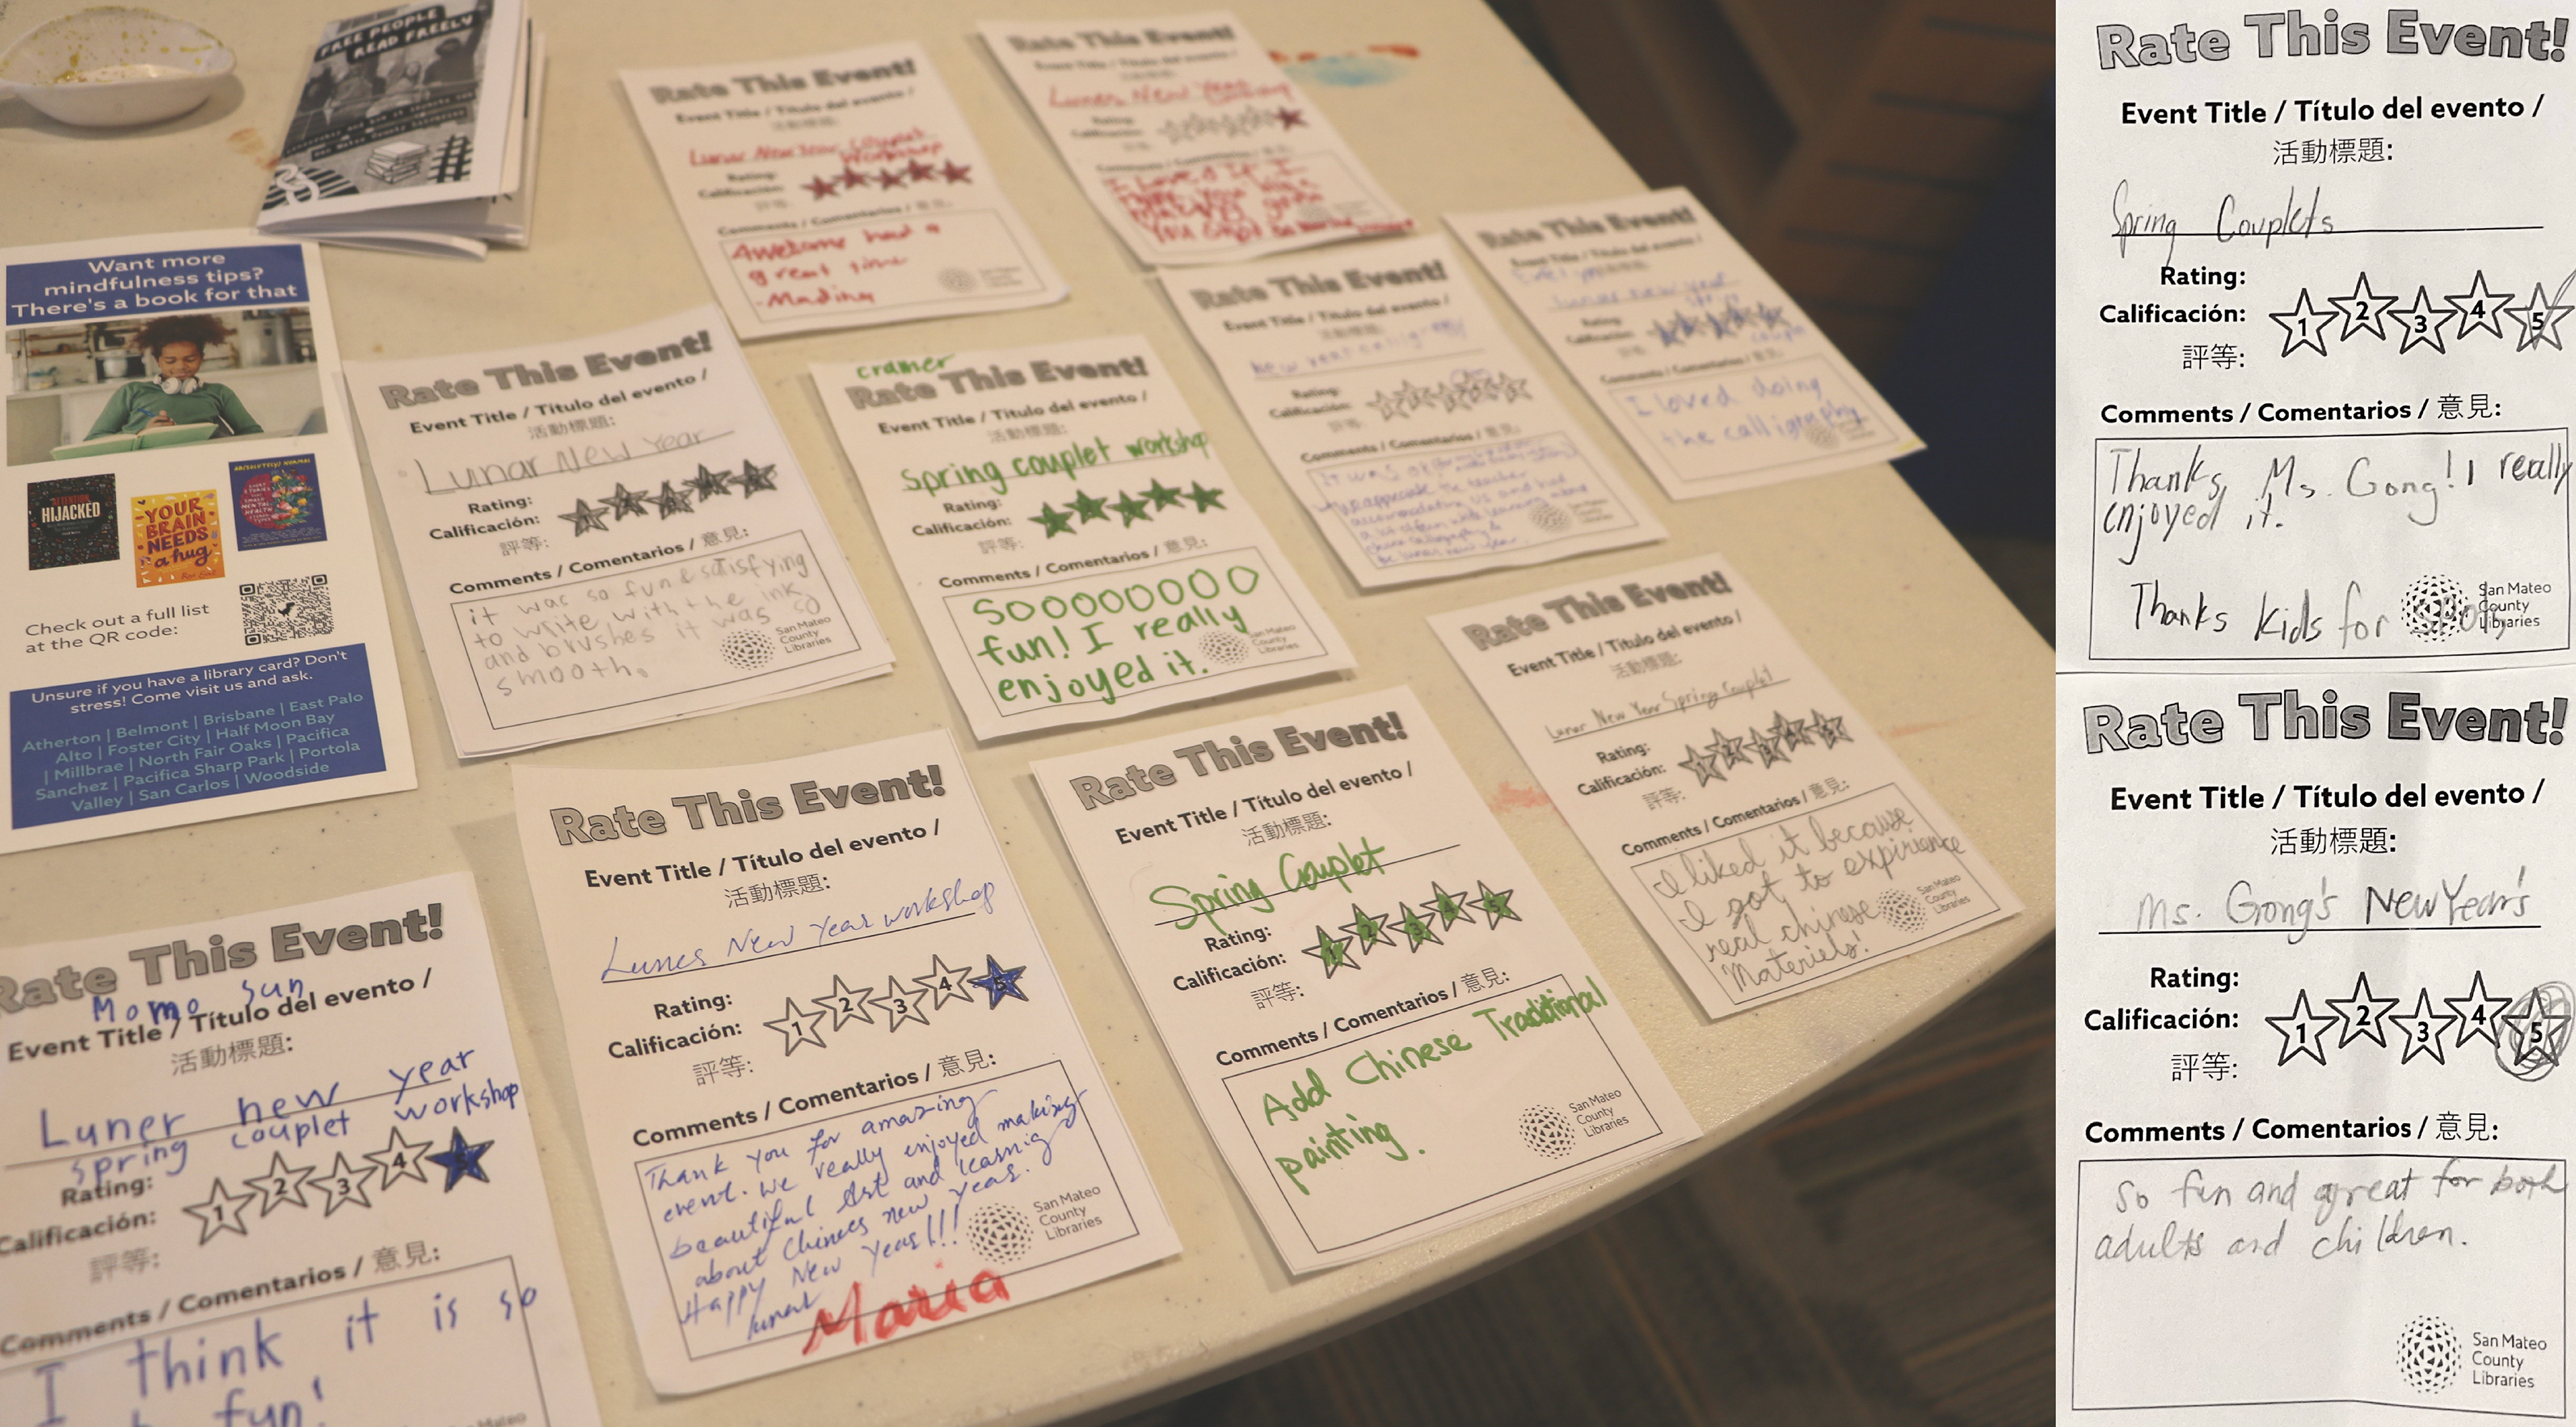 FREE PEOPLE
READ FREELY
Want more
mindfulness tips?
There's a book for that
ATTENTION
HIJACKED
YOUR
BRAIN
NEEDS
a hug
Check out a full list
at the QR code:
Unsure if you have a library card? Don't
stress! Come visit us and ask.
Atherton | Belmont | Brisbane | East Palo
Alto | Foster City | Half Moon Bay
| Millbrae | North Fair Oaks | Pacifica
Sanchez | Pacifica Sharp Park | Portola
Valley | San Carlos | Woodside
Rate This Event!
Event Title / Título del evento /
活動標題:
Lunar New Year Couplet
Workshop
Rating:
Calificación:
評等:
Comments / Comentarios / 意見:
Awesome had a
great time
-Madina
San Mateo
County
Libraries
Rate This Event!
Event Title / Título del evento /
活動標題:
Lunes New Year
Rating:
Calificación:
Comments / Comentarios / 意見:
I loved it I
Rate This Event!
Event Title / Título del evento /
lunar new year
Rating:
Calificación:
評等:
Comments / Comentarios / 意見:
I loved doing
the calligraphy
Rate This Event!
Event Title / Título del evento /
活動標題:
New year
Rating:
Calificación:
評等:
Comments / Comentarios / 意見:
It was
San Mateo
County
Libraries
Rate This Event!
Event Title / Título del evento /
活動標題:
Lunar New Year
Rating:
Calificación:
評等:
1 2 3 4 5
Comments / Comentarios / 意見:
it was so fun & satisfying
to write with the ink
and brushes it was so
smooth.
San Mateo
County
Libraries
cramer
Rate This Event!
Event Title / Título del evento /
活動標題:
Spring couplet workshop
Rating:
Calificación:
評等:
Comments / Comentarios / 意見:
Soooooooo
fun! I really
enjoyed it.
San Mateo
County
Libraries
Rate This Event!
Event Title / Título del evento /
活動標題:
Lunar New Year Spring Couplet
Rating:
Calificación:
評等:
1 2 3 4 5
Comments / Comentarios / 意見:
I liked it because
I got to expirience
real chinese
Materiels!
San Mateo
County
Libraries
Rate This Event!
Momo Sun
Event Title / Título del evento /
活動標題:
Luner new year
spring couplet workshop
Rating:
Calificación:
評等:
1 2 3 4 5
Comments / Comentarios / 意見:
I think it is so
fun!
San Mateo
Rate This Event!
Event Title / Título del evento /
活動標題:
Lunes New Year workshop
Rating:
Calificación:
評等:
1 2 3 4 5
Comments / Comentarios / 意見:
Thank you for amazing
event. We really enjoyed making
beautiful Art and learning
about Chines new year.
Happy New Year!!!
lunar
Maria
San Mateo
County
Libraries
Rate This Event!
Event Title / Título del evento /
活動標題:
Spring Couplet
Rating:
Calificación:
評等:
1 2 3 4 5
Comments / Comentarios / 意見:
Add Chinese Traditional
painting.
San Mateo
County
Libraries
Rate This Event!
Event Title / Título del evento /
活動標題:
Spring Couplets
Rating:
Calificación:
評等:
1 2 3 4 5
Comments / Comentarios / 意見:
Thanks, Ms. Gong! I really
enjoyed it.
Thanks kids for
San Mateo
County
Libraries
Rate This Event!
Event Title / Título del evento /
活動標題:
Ms. Gong's New Year's
Rating:
Calificación:
評等:
1 2 3 4 5
Comments / Comentarios / 意見:
So fun and great for both
adults and children.
San Mateo
County
Libraries